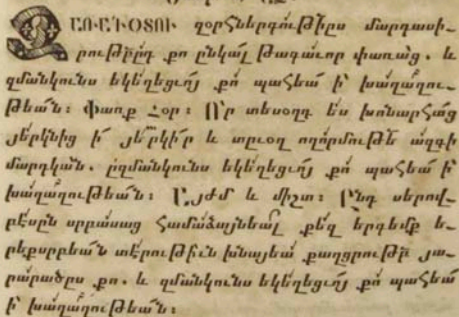 ՌԱՒԻՕՏՈՒ զօրՀներգութիբս մարդասի֊
րութբդ քո ընկալ թագաւոր փառաց. և
զմանկունս եկեղեցւոյ քո պաՀեա ի խաղաղու֊
թեան։ փառք Հօր։ Որ տեսօղդ ես խոնարՀաց
յերկնից ի յերկիր և տուօղ ողորմութե ազգի
մարդկան. զզմանկունս եկեղեցւոյ քո պաՀեա ի
խաղաղութեան։ Այժմ և միշտ։ Ընդ սերով֊
բէսըն սրբասաց Համաձայնեալ քեզ երգեմք ե֊
րեքսրբեան տէրութիւն խնայեա քաղցրութբ յա֊
րարածըս քո. և զմանկունս եկեղեցւոյ քո պաՀեա
ի խաղաղութեան։